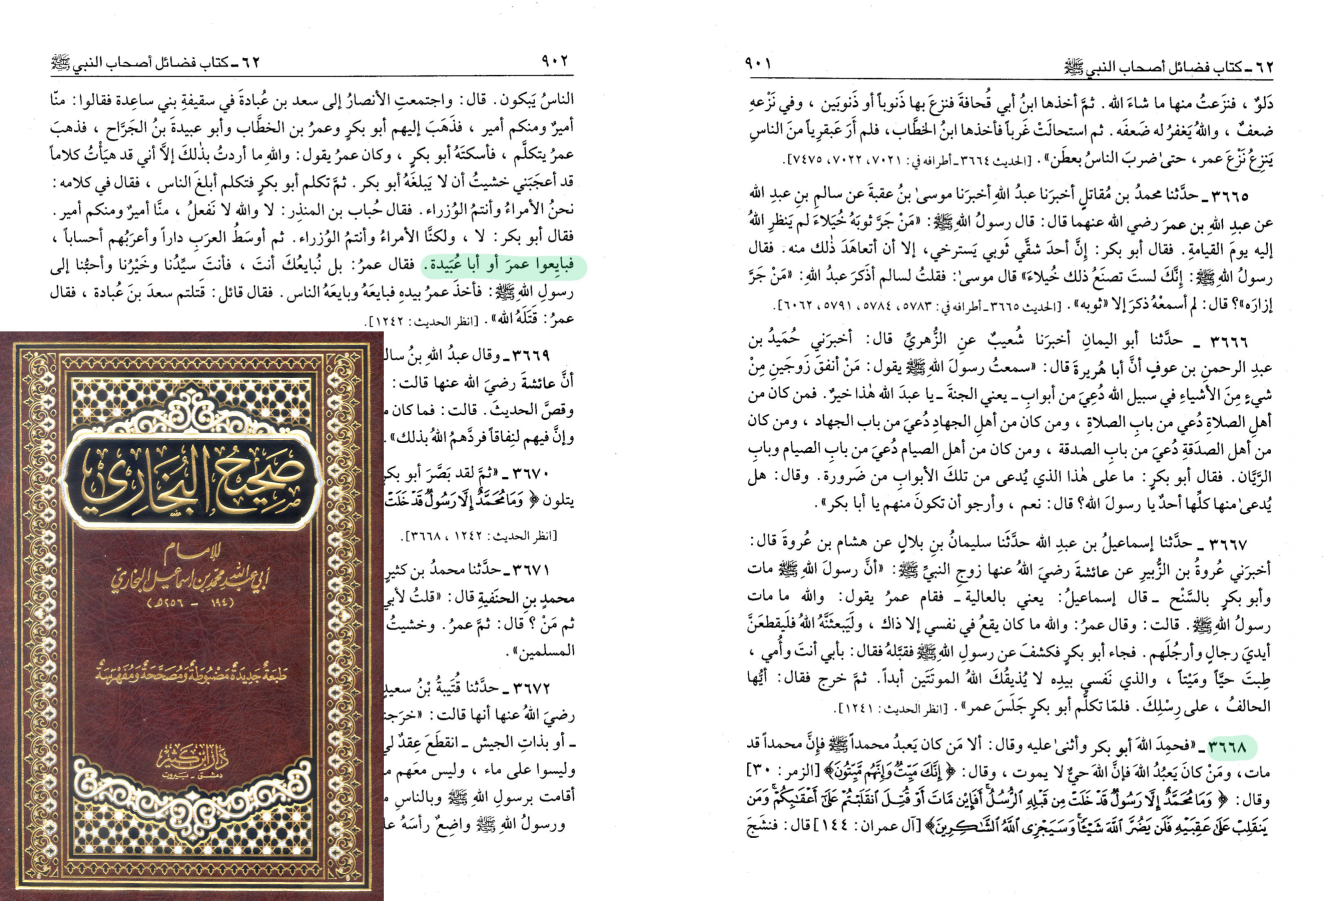 ٦٢ ـ كتاب فضائل أصحاب النبي ﷺ
٩٠١
دَلوٌ ، فنزَعتُ منها ما شاءَ الله . ثمَّ أخذها ابنُ أبي قُحافةَ فنزعَ بها ذَنوباً أو ذَنوبَين ، وفي نَزْعهِ
ضعفٌ ، واللهُ يَغفرُ له ضَعفَه . ثم استحالَتْ غَرباً فأخذَها ابنُ الخطَّاب، فلم أرَ عَبقرياً منَ الناسِ
يَنزِعُ نَزْعَ عمر، حتى ضربَ الناسُ بعطَن» . [الحديث ٣٦٦٤ ـ أطرافه في: ٧٠٢١، ٧٠٢٢، ٧٤٧٥].
٣٦٦٥ ـ حدَّثنا محمدُ بن مُقاتلٍ أخبرَنا عبدُ اللهِ أخبرَنا موسىٰ بنُ عقبةَ عن سالمِ بنِ عبدِ الله
عن عبدِ اللهِ بن عمرَ رضي الله عنهما قال: قال رسولُ اللهِ ﷺ: «مَنْ جَرَّ ثوبَهُ خُيَلاءَ لم يَنظرِ اللهُ
إليه يومَ القيامةِ. فقال أبو بكر: إنَّ أحدَ شقَّي ثَوبي يَسترخي، إلا أن أتعاهَدَ ذٰلك منه. فقال
رسولُ اللهِ ﷺ: إنَّكَ لستَ تصنَعُ ذلك خُيلاءَ» قال موسىٰ: فقلتُ لسالم أذَكرَ عبدُ اللهِ: «مَنْ جَرَّ
إزارَه»؟ قال: لم أسمعْهُ ذكرَ إلا «ثوبه» . [الحديث ٣٦٦٥ ـ أطرافه في: ٥٧٨٣، ٥٧٨٤، ٥٧٩١، ٦٠٦٢].
٣٦٦٦ ـ حدَّثنا أبو اليمانِ أخبرَنا شُعيبٌ عنِ الزُّهريِّ قال: أخبرَني حُمَيدُ بن
عبدِ الرحمنِ بن عوفٍ أنَّ أبا هُريرةَ قال: «سمعتُ رسولَ اللهِ ﷺ يقول: مَنْ أنفقَ زَوجَينِ مِنْ
شيءٍ مِنَ الأشياءِ في سبيل الله دُعِيَ من أبوابِ ـ يعني الجنة ـ يا عبدَ الله هٰذا خيرٌ. فمن كان من
أهلِ الصلاةِ دُعي من بابِ الصلاةِ ، ومن كان من أهلِ الجهادِ دُعيَ من باب الجهاد ، ومن كان
من أهل الصدَقةِ دُعيَ من بابِ الصدقة ، ومن كان من أهل الصيام دُعيَ من بابِ الصيام وبابِ
الرَّيَّان. فقال أبو بكرٍ: ما على هٰذا الذي يُدعى من تلكَ الأبوابِ من ضَرورة. وقال: هل
يُدعىٰ منها كلِّها أحدٌ يا رسولَ الله؟ قال: نعم ، وأرجو أن تكونَ منهم يا أبا بكر» .
٣٦٦٧ ـ حدَّثنا إسماعيلُ بن عبدِ الله حدَّثَنا سليمانُ بنِ بلالٍ عن هشام بن عُروةَ قال:
أخبرَني عُروةُ بن الزُّبيرِ عن عائشةَ رضيَ اللهُ عنها زوجِ النبيِّ ﷺ: «أنَّ رسولَ اللهِ ﷺ مات
وأبو بكرٍ بالسُّنْح ـ قال إسماعيلُ: يعني بالعالية ـ فقام عمرُ يقول: والله ما مات
رسولُ اللهِ ﷺ. قالت: وقال عمرُ: واللهِ ما كان يقعُ في نفسي إلا ذاك ، ولَيَبعثنَّهُ اللهُ فلَيقطعَنَّ
أيديَ رجالٍ وأرجُلَهم. فجاء أبو بكرٍ فكشفَ عن رسولِ اللهِ ﷺ فقبَّلهُ فقال: بأبي أنتَ وأُمي ،
طِبتَ حيّاً ومَيّتاً ، والذي نَفسي بيدِه لا يُذيقُكَ اللهُ الموتَتَينِ أبداً. ثمَّ خرج فقال: أيُّها
الحالفُ ، على رِسْلِكَ. فلمّا تكلَّم أبو بكرٍ جَلسَ عمر» . [انظر الحديث: ١٢٤١].
٣٦٦٨ ـ «فحمِدَ اللهَ أبو بكر وأثنىٰ عليه وقال: ألا مَن كان يَعبدُ محمداً ﷺ فإنَّ محمداً قد
مات، ومَنْ كانَ يَعبُدُ اللهَ فإنَّ اللهَ حيٌّ لا يموت ، وقال: ﴿ إِنَّكَ مَيِّتٌ وَإِنَّهُم مَّيِّتُونَ﴾ [الزمر: ٣٠]
وقال: ﴿ وَمَا مُحَمَّدٌ إِلَّا رَسُولٌ قَدْ خَلَتْ مِن قَبْلِهِ ٱلرُّسُلُ أَفَإِيْن مَّاتَ أَوْ قُتِلَ ٱنقَلَبْتُمْ عَلَىٰٓ أَعْقَٰبِكُمْ وَمَن
يَنقَلِبْ عَلَىٰ عَقِبَيْهِ فَلَن يَضُرَّ ٱللَّهَ شَيْـًٔا وَسَيَجْزِى ٱللَّهُ ٱلشَّٰكِرِينَ﴾ [آل عمران: ١٤٤] قال: فنشَجَ
٩٠٢
٦٢ ـ كتاب فضائل أصحاب النبي ﷺ
الناسُ يَبكون. قال: واجتمعتِ الأنصارُ إلى سعد بن عُبادةَ في سقيفةِ بني ساعِدة فقالوا: منّا
أميرٌ ومنكم أمير ، فذَهَبَ إليهم أبو بكرٍ وعمرُ بن الخطَّاب وأبو عبيدةَ بنُ الجَرَّاح ، فذهبَ
عمرُ يتكلَّم ، فأسكتَهُ أبو بكرٍ ، وكان عمرُ يقول: واللهِ ما أردتُ بذٰلكَ إلاَّ أني قد هيَأتُ كلاماً
قد أعجَبَني خشيتُ أن لا يَبلغَهُ أبو بكر. ثمَّ تكلم أبو بكرٍ فتكلم أبلغَ الناس ، فقال في كلامه:
نحنُ الأمراءُ وأنتمُ الوُزراء. فقال حُباب بن المنذِر: لا والله لا نَفعلُ ، منَّا أميرٌ ومنكم أمير.
فقال أبو بكر: لا ، ولكنَّا الأمراءُ وأنتمُ الوُزراء. ثم أوسَطُ العرَبِ داراً وأعرَبُهم أحساباً ،
فبايِعوا عمرَ أو أبا عُبَيدة. فقال عمرُ: بل نُبايعُكَ أنتَ ، فأنتَ سيِّدُنا وخَيْرُنا وأحبُّنا إلى
رسولِ اللهِ ﷺ: فأخذَ عمرُ بيدهِ فبايعَهُ وبايعَهُ الناس. فقال قائل: قَتلتم سعدَ بنَ عُبادة ، فقال
عمرُ: قَتَلَهُ الله» . [انظر الحديث: ١٢٤٢].
٣٦٦٩ ـ وقال عبدُ اللهِ بنُ
أنَّ عائشةَ رضيَ الله عنها قالت:
وقصَّ الحديثَ. قالت: فما كان
وإنَّ فيهم لَنِفاقاً فردَّهمُ اللهُ بذلك» .
٣٦٧٠ ـ «ثمَّ لقد بَصَّرَ أبو بكرٍ
يتلون ﴿ وَمَا مُحَمَّدٌ إِلَّا رَسُولٌ قَدْ خَلَتْ
[انظر الحديث: ١٢٤٢ ، ٣٦٦٨].
٣٦٧١ ـ حدَّثنا محمدُ بن كثيرٍ
محمدِ بنِ الحنَفيةِ قال: «قلتُ لأبي
ثم مَنْ ؟ قال: ثمَّ عمرُ. وخشيتُ
المسلمين» .
٣٦٧٢ ـ حدَّثنا قُتيبةُ بْنُ سعيدٍ
رضيَ اللهُ عنها أنها قالت:
ـ أو بذاتِ الجيش ـ انقطَعَ عِقدٌ لي
وليسوا على ماء ، وليس معَهم
أقامت برسولِ اللهِ ﷺ وبالناسِ
ورسولُ اللهِ ﷺ واضِعٌ رأسَهُ
صَحِيحُ البُخَارِي
للإمام
أبي عبد الله محمد بن إسماعيل البخاري
(١٩٤ - ٢٥٦ هـ)
طبعَة جَديدَة مَضبُوطَة وَمُصَحَّحَة وَمُفَهرَسَة
دار ابن كثير
دمشق - بيروت